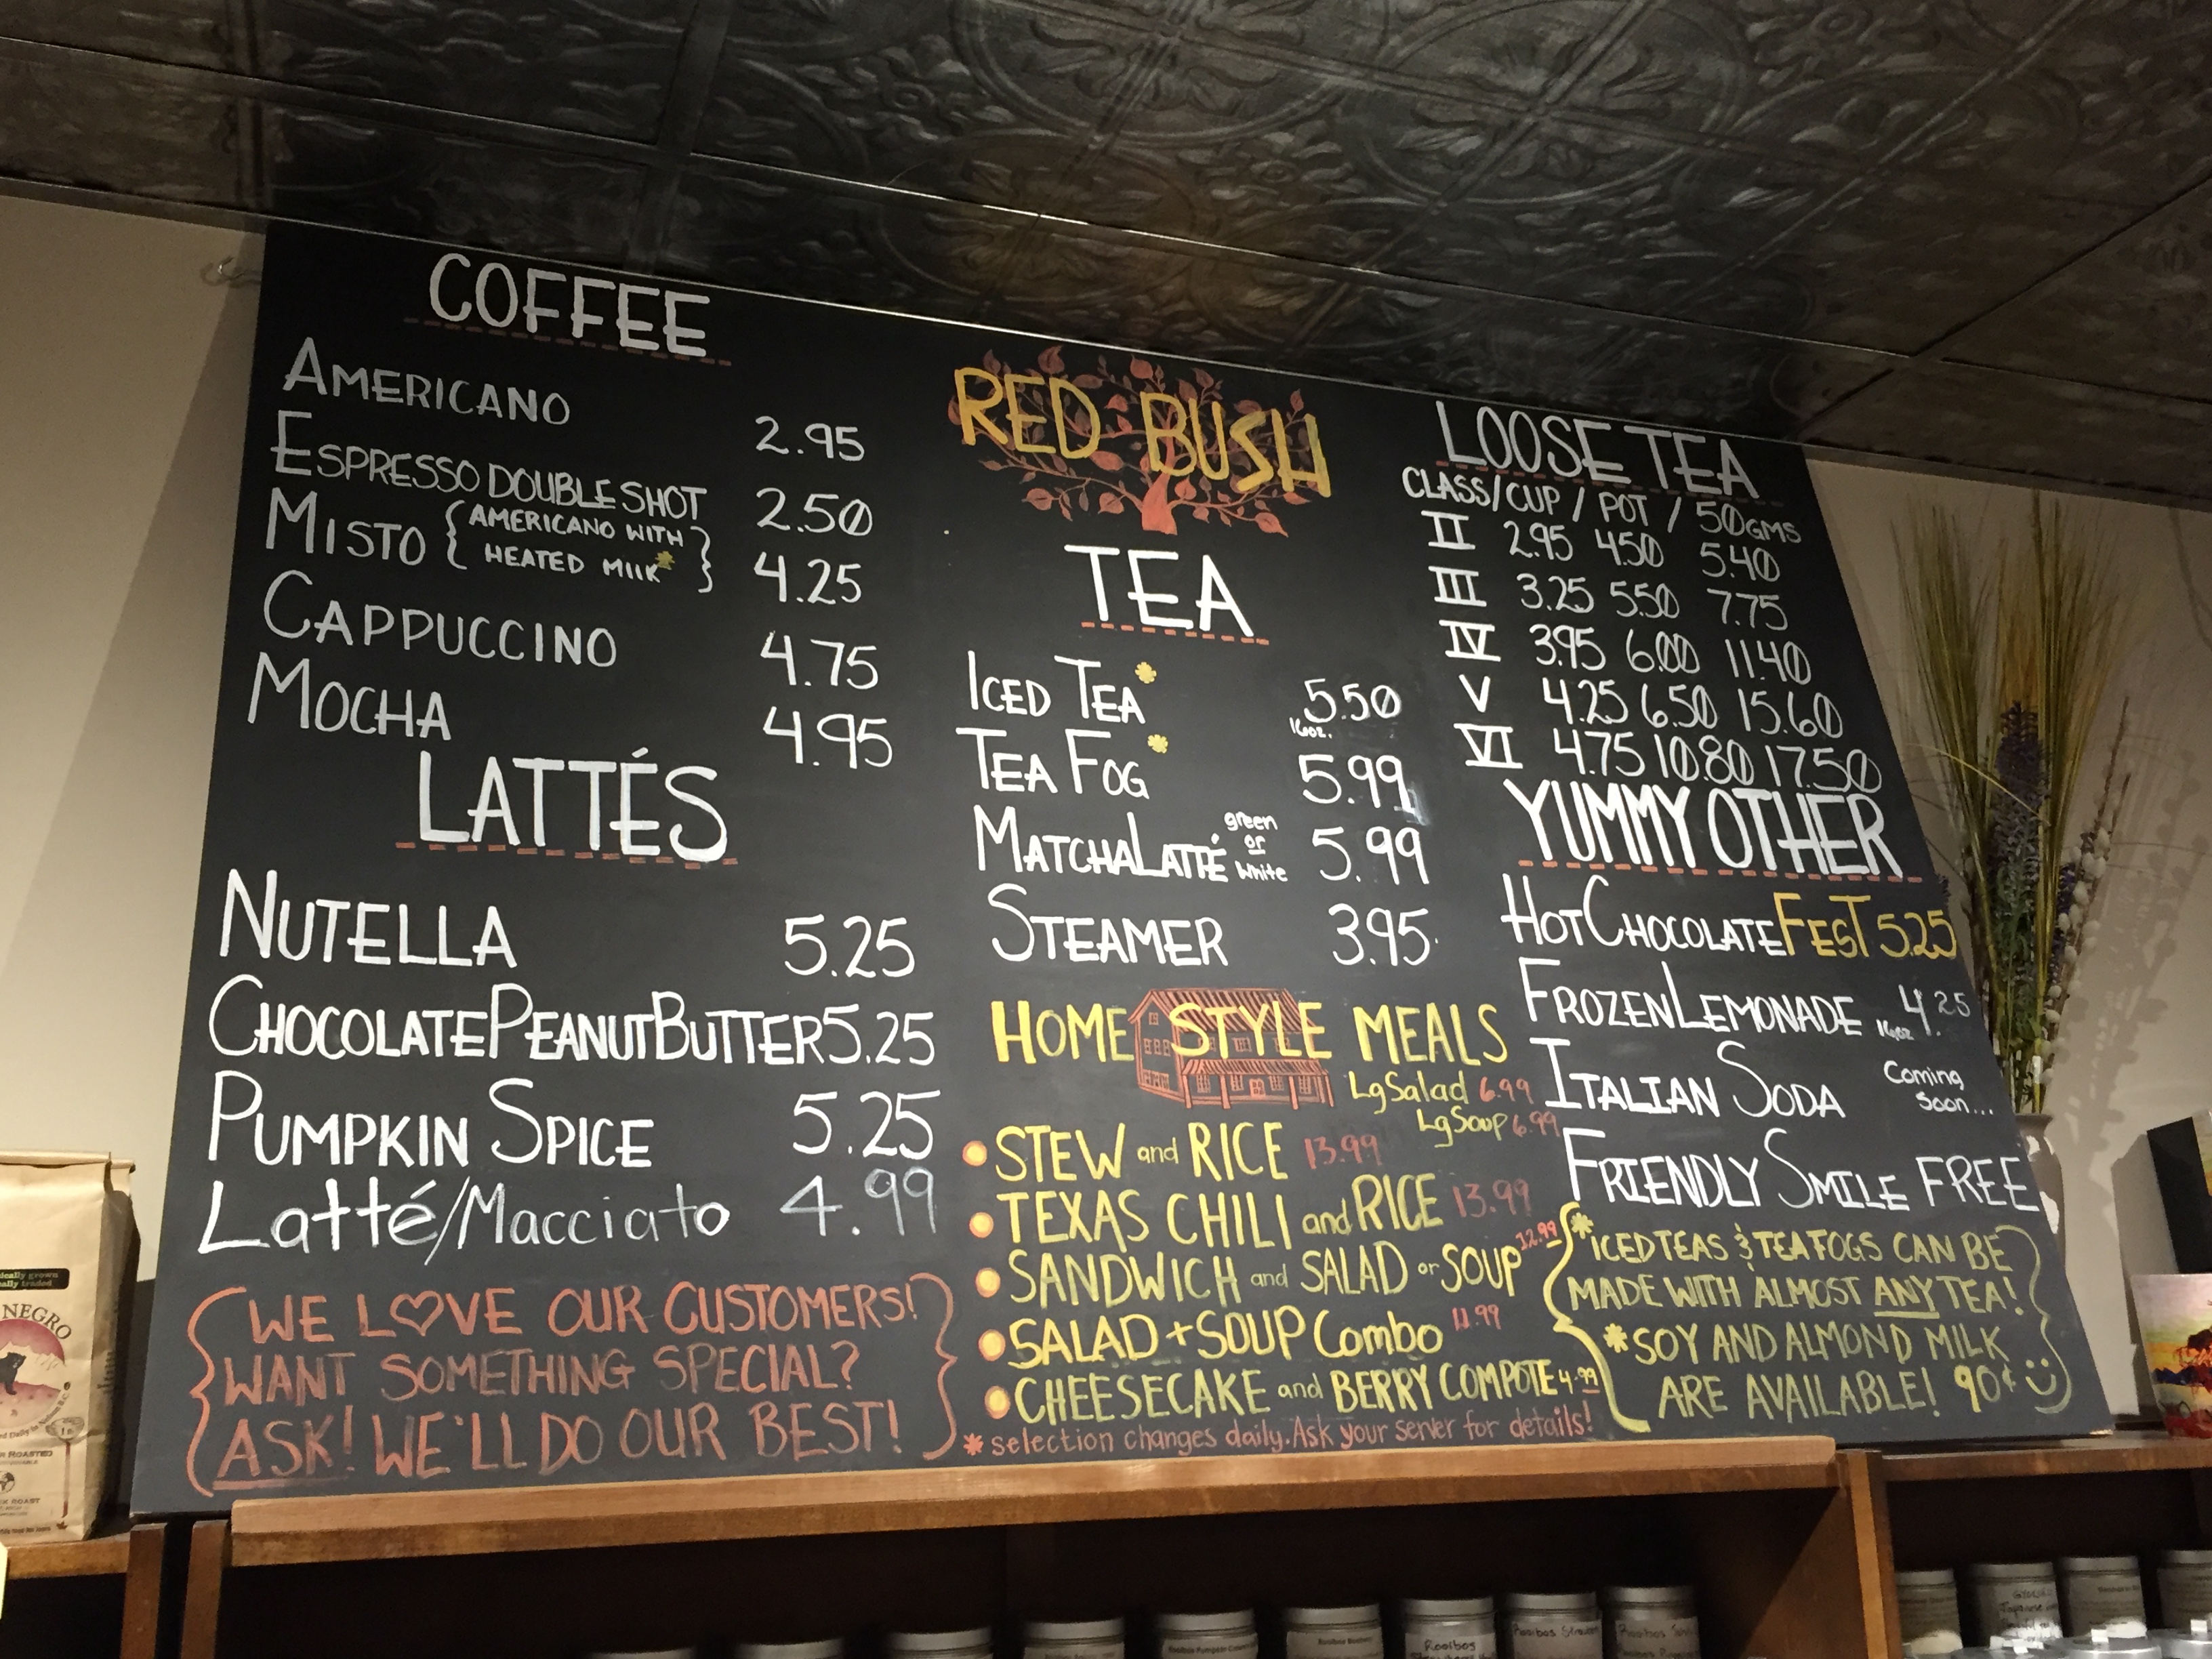 COFFEE
AMERICANO 2.95
ESPRESSO DOUBLE SHOT 2.50
MISTO { AMERICANO WITH HEATED MIlK* } 4.25
CAPPUCCINO 4.75
MOCHA 4.95
LATTÉS
NUTELLA 5.25
CHOCOLATE PEANUT BUTTER 5.25
PUMPKIN SPICE 5.25
Latté/Macciato 4.99
WE LOVE OUR CUSTOMERS!
WANT SOMETHING SPECIAL?
ASK! WE'LL DO OUR BEST!
RED BUSH
TEA
ICED TEA* 16oz. 5.50
TEA FOG* 5.99
MATCHA LATTÉ green or white 5.99
STEAMER 3.95
HOME STYLE MEALS
Lg Salad 6.99
Lg Soup 6.99
STEW and RICE 13.99
TEXAS CHILI and RICE 13.99
SANDWICH and SALAD or SOUP 12.99
SALAD + SOUP Combo 11.99
CHEESECAKE and BERRY COMPOTE 4.99
* selection changes daily. Ask your server for details!
LOOSE TEA
CLASS / CUP / POT / 50GMS
II 2.95 4.50 5.40
III 3.25 5.50 7.75
IV 3.95 6.00 11.40
V 4.25 6.50 15.60
VI 4.75 10.80 17.50
YUMMY OTHER
HOT CHOCOLATE FEST 5.25
FROZEN LEMONADE 16oz 4.25
ITALIAN SODA Coming Soon...
FRIENDLY SMILE FREE
*ICED TEAS & TEA FOGS CAN BE
MADE WITH ALMOST ANY TEA!
*SOY AND ALMOND MILK
ARE AVAILABLE! 90¢
NEGRO
Rooibos